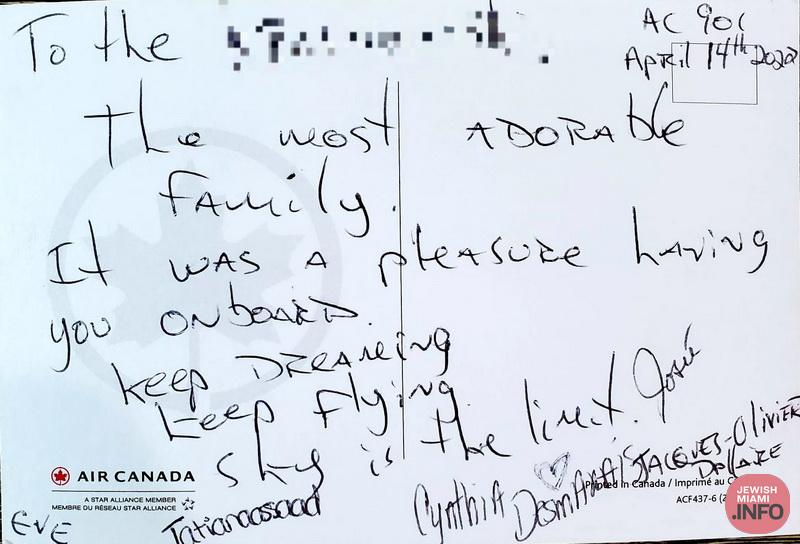 To the
AC 901
April 14th 2022
The most ADORAble
family.
It was a pleasure having
you onboard.
keep Dreaming
keep flying
Sky is the limit. Josée
AIR CANADA
A STAR ALLIANCE MEMBER
MEMBRE DU RÉSEAU STAR ALLIANCE
EVE
Tatianaassaad
Cynthia Desmarais
JACQUES-Olivier
Dallaire
Printed in Canada / Imprimé au C
ACF437-6 (2
JEWISH
MIAMI
.INFO